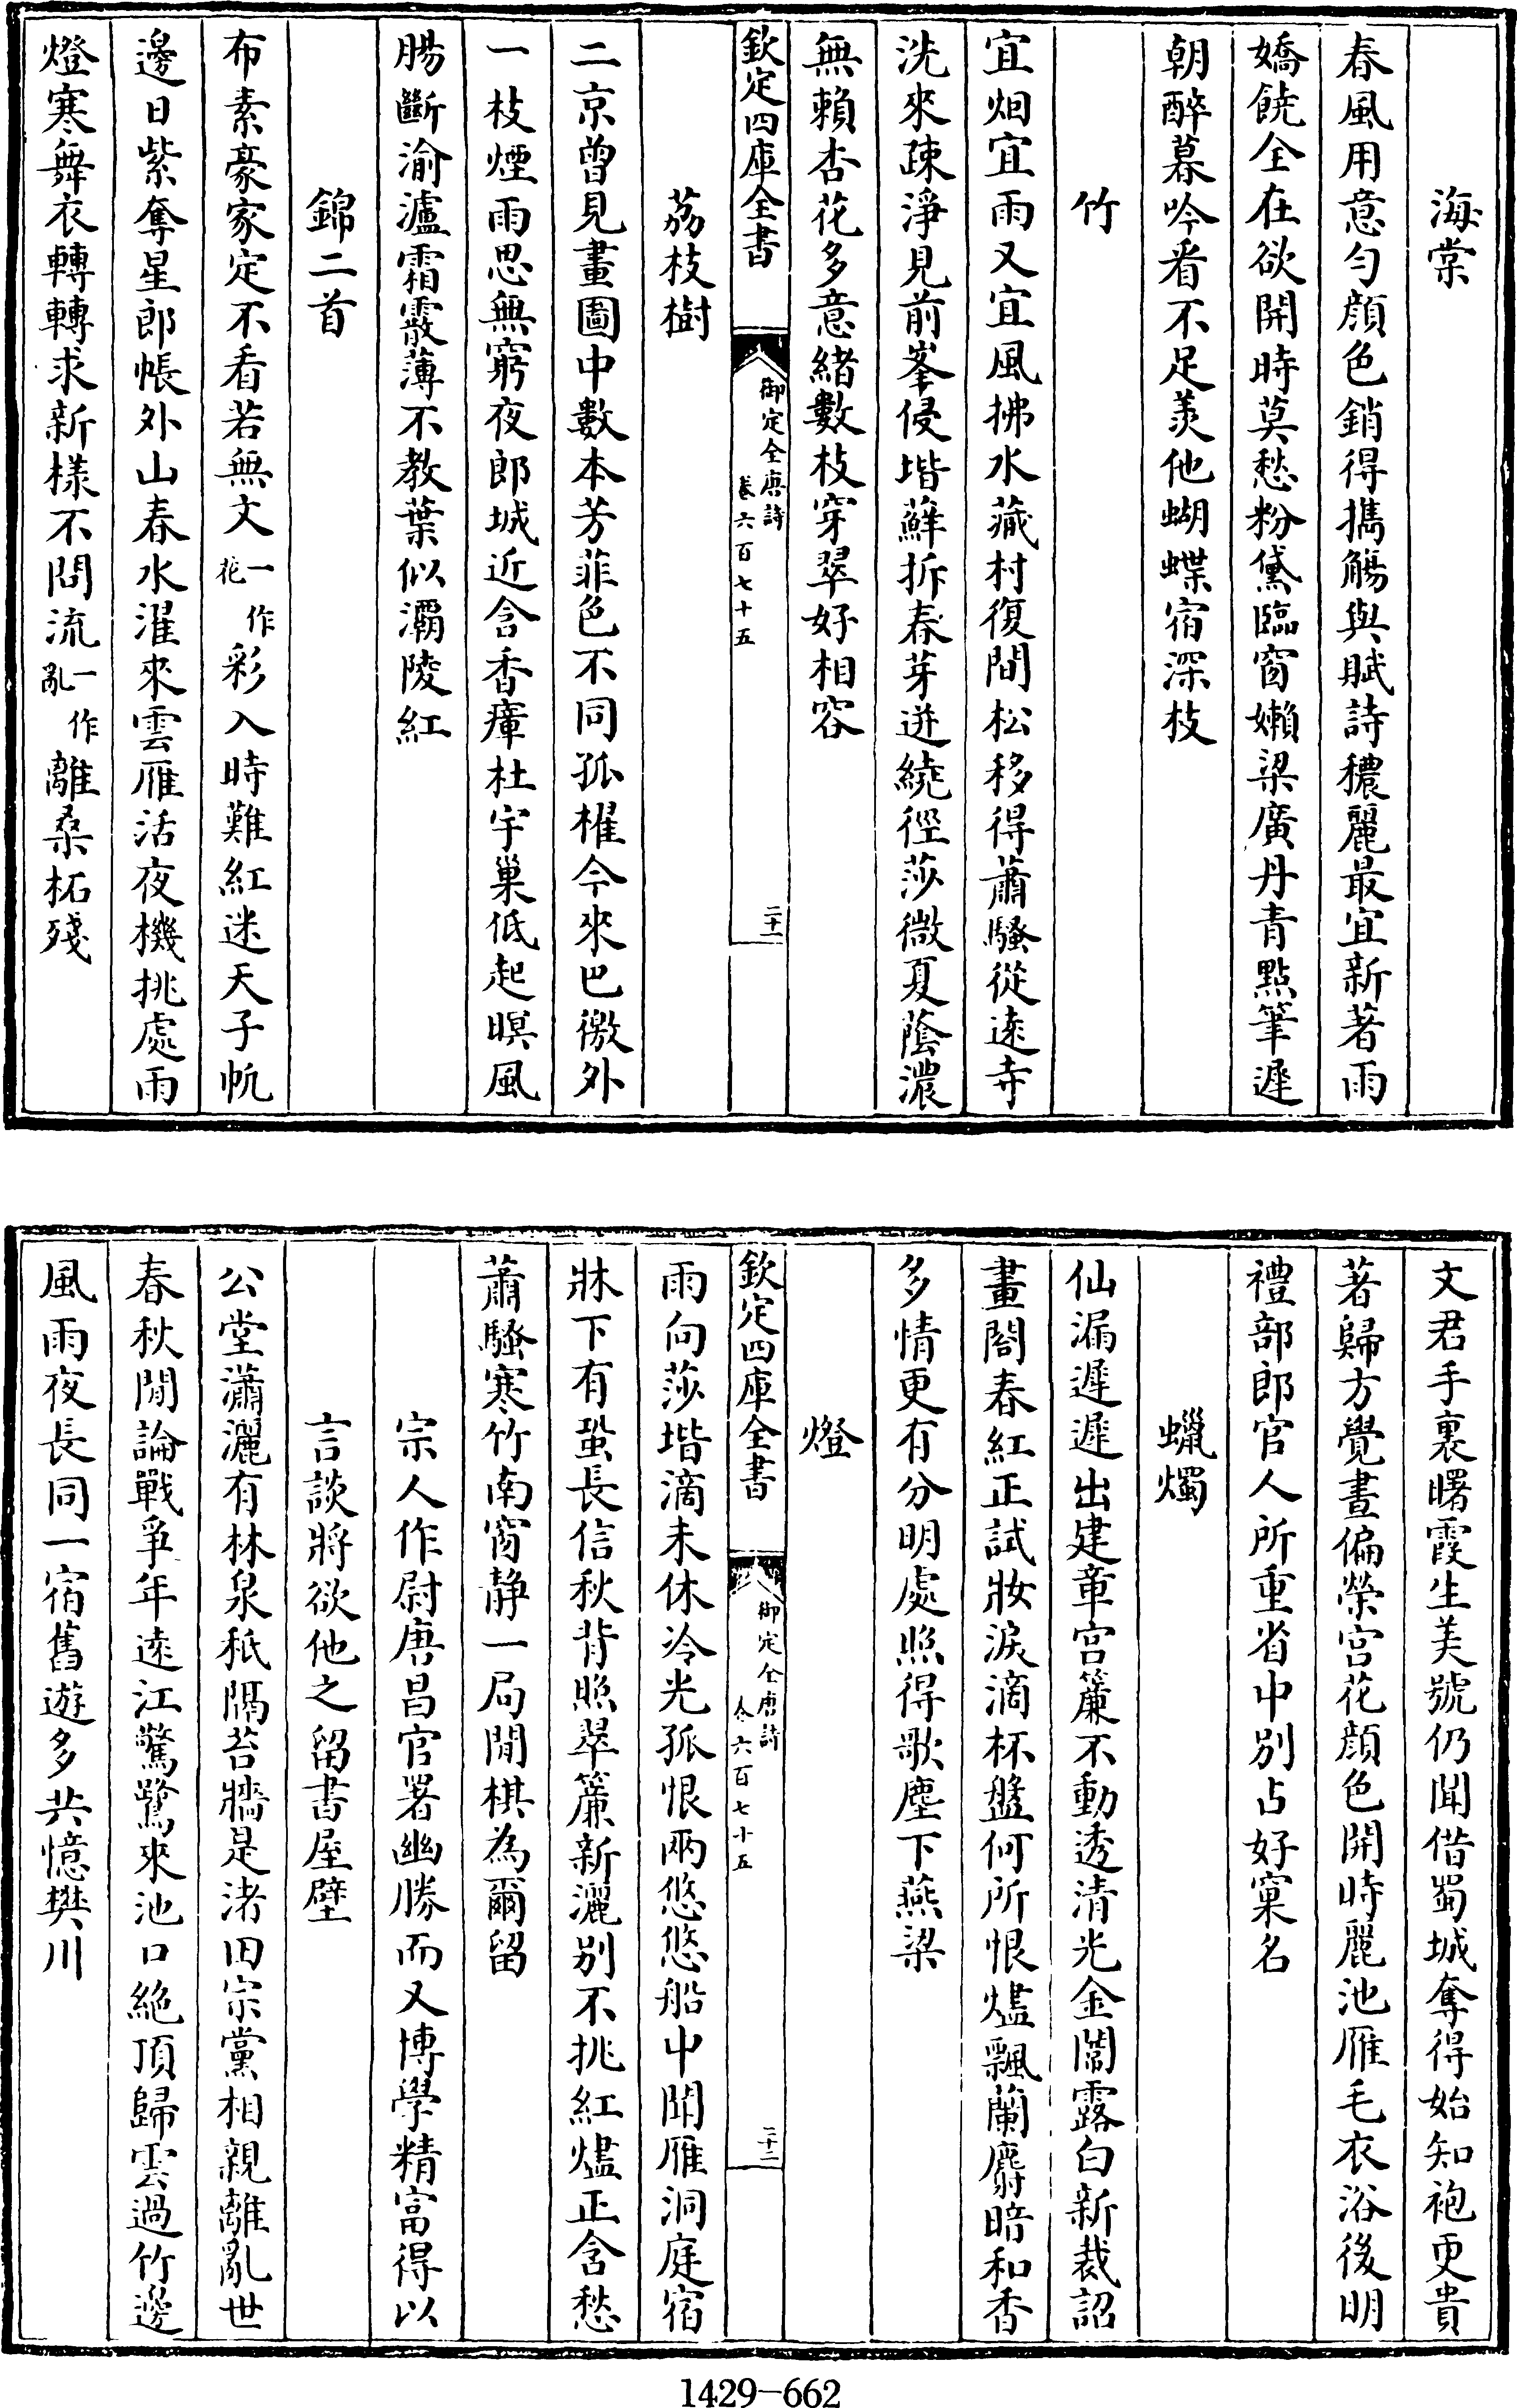 海棠
春風用意勻顔色銷得擕觴與賦詩穠麗最宜新著雨
嬌饒全在欲開時莫愁粉黛臨窗嬾梁廣丹青點筆遲
朝醉暮吟看不足羡他蝴蝶宿深枝
竹
宜烟宜雨又宜風拂水藏村復間松移得蕭騷從逺寺
洗來疎淨見前峯侵堦蘚拆春芽迸繞徑莎微夏蔭濃
無賴杏花多意緒數枝穿翠好相容
欽定四庫全書
御定全唐詩
卷六百七十五
二十一
荔枝樹
二京曾見畫圖中數本芳菲色不同孤櫂今來巴徼外
一枝煙雨思無窮夜郎城近含香瘴杜宇巢低起暝風
腸斷渝瀘霜霰薄不教葉似灞陵紅
錦二首
布素豪家定不看若無文一作花彩入時難紅迷天子帆
邊日紫奪星郎帳外山春水濯來雲雁活夜機挑處雨
燈寒舞衣轉轉求新樣不問流一作亂離桑柘殘
文君手裏曙霞生美號仍聞借蜀城奪得始知袍更貴
著歸方覺晝偏榮宫花顔色開時麗池雁毛衣浴後明
禮部郎官人所重省中別占好窠名
蠟燭
仙漏遲遲出建章宫簾不動透清光金閨露白新裁詔
畫閣春紅正試妝淚滴杯盤何所恨燼飄蘭麝暗和香
多情更有分明處照得歌塵下燕梁
燈
欽定四庫全書
御定全唐詩
卷六百七十五
二十二
雨向莎堦滴未休冷光孤恨兩悠悠船中聞雁洞庭宿
牀下有蛩長信秋背照翠簾新灑别不挑紅燼正含愁
蕭騷寒竹南窗静一局閒棋為爾留
宗人作尉唐昌官署幽勝而又博學精富得以
言談將欲他之留書屋壁
公堂瀟灑有林泉秖隔苔牆是渚田宗黨相親離亂世
春秋閒論戰爭年逺江驚鷺來池口絶頂歸雲過竹邊
風雨夜長同一宿舊遊多共憶樊川
1429-662